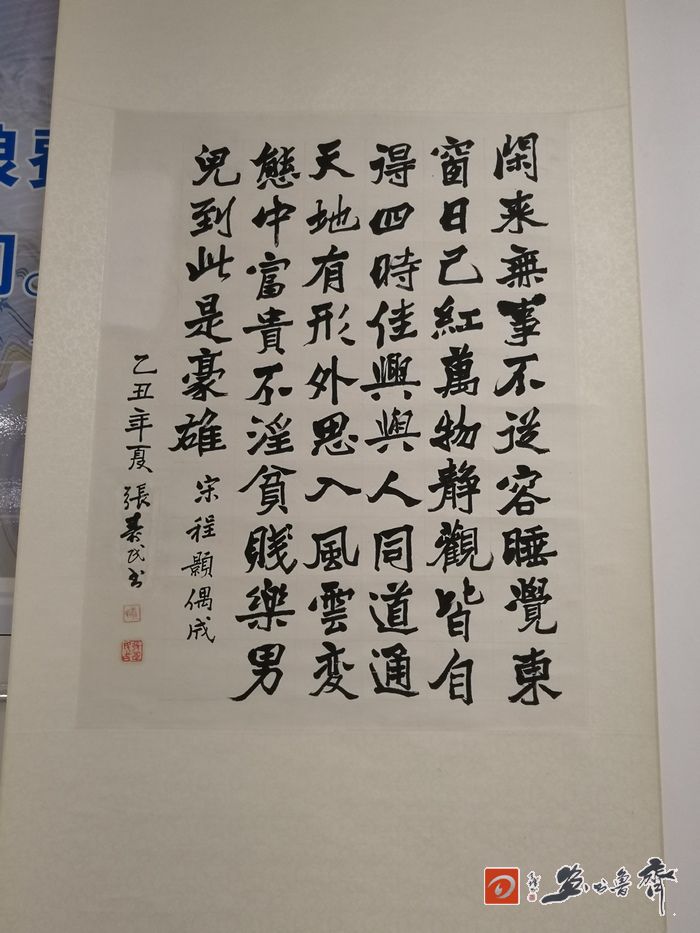 閑来無事不從容睡覺東
窗日已紅萬物静觀皆自
得四時佳興與人同道通
天地有形外思入風雲変
態中富貴不淫貧賤樂男
兒到此是豪雄
宋程顥偶成
乙丑年夏張壽民书